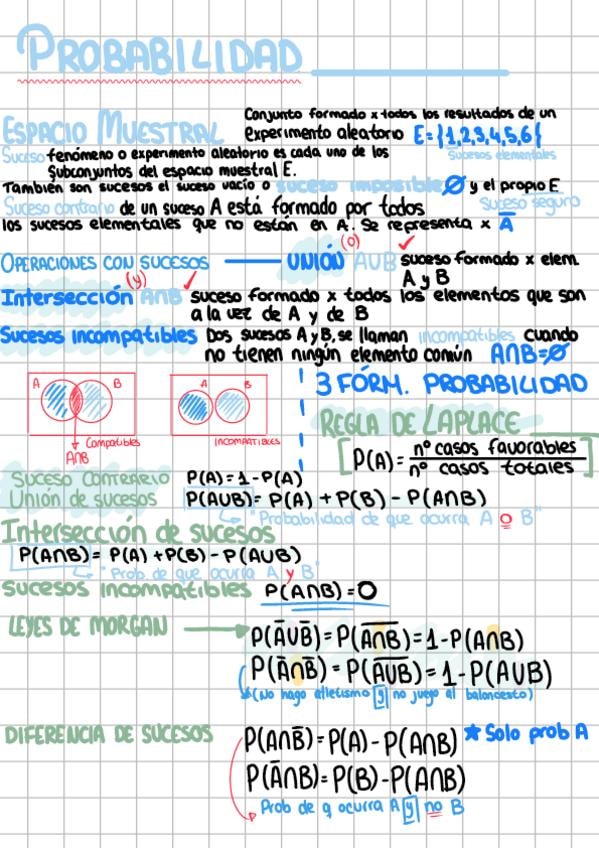 PROBABILIDAD
ESPACIO MUESTRAL Conjunto formado x todos los resultados de un
experimento aleatorio E={1,2,3,4,5,6}
Suceso fenómeno o experimento aleatorio es cada uno de los Sucesos elementales
Subconjuntos del espacio muestral E.
También son sucesos el suceso vacío o suceso imposible Ø y el propio E
Suceso seguro
Suceso contrario de un suceso A está formado por todos
los sucesos elementales que no están en A. Se representa x A̅
OPERACIONES CON SUCESOS UNIÓN (o) AUB ✓ suceso formado x elem.
A y B
Intersección (y) A∩B ✓ suceso formado x todos los elementos que son
a la vez de A y de B
Sucesos incompatibles Dos sucesos A y B, se llaman incompatibles cuando
no tienen ningún elemento común A∩B=Ø
A B
Compatibles
A∩B
A B
INCOMPATIBLES
3 FÓRM. PROBABILIDAD
REGLA DE LAPLACE
[P(A)= nº casos favorables / nº casos totales]
SUCESO CONTRARIO P(A)=1-P(A)
Unión de sucesos P(AUB)= P(A)+P(B)-P(A∩B)
"Probabilidad de que ocurra A o B"
Intersección de sucesos
P(A∩B)= P(A)+P(B)-P(AUB)
"Prob. de que ocurra A y B"
sucesos incompatibles P(A∩B)=0
LEYES DE MORGAN → P(A̅UB̅)=P(A̅∩̅B̅)=1-P(A∩B)
P(A̅∩B̅)=P(A̅U̅B̅)=1-P(AUB)
(No hago atletismo y no juego al baloncesto)
DIFERENCIA DE SUCESOS P(A∩B̅)=P(A)-P(A∩B) ★ Solo prob A
P(A̅∩B)=P(B)-P(A∩B)
Prob de q ocurra A y no B